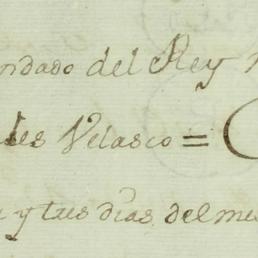 ndado del Rey
les Velasco =
y tres dias del mes